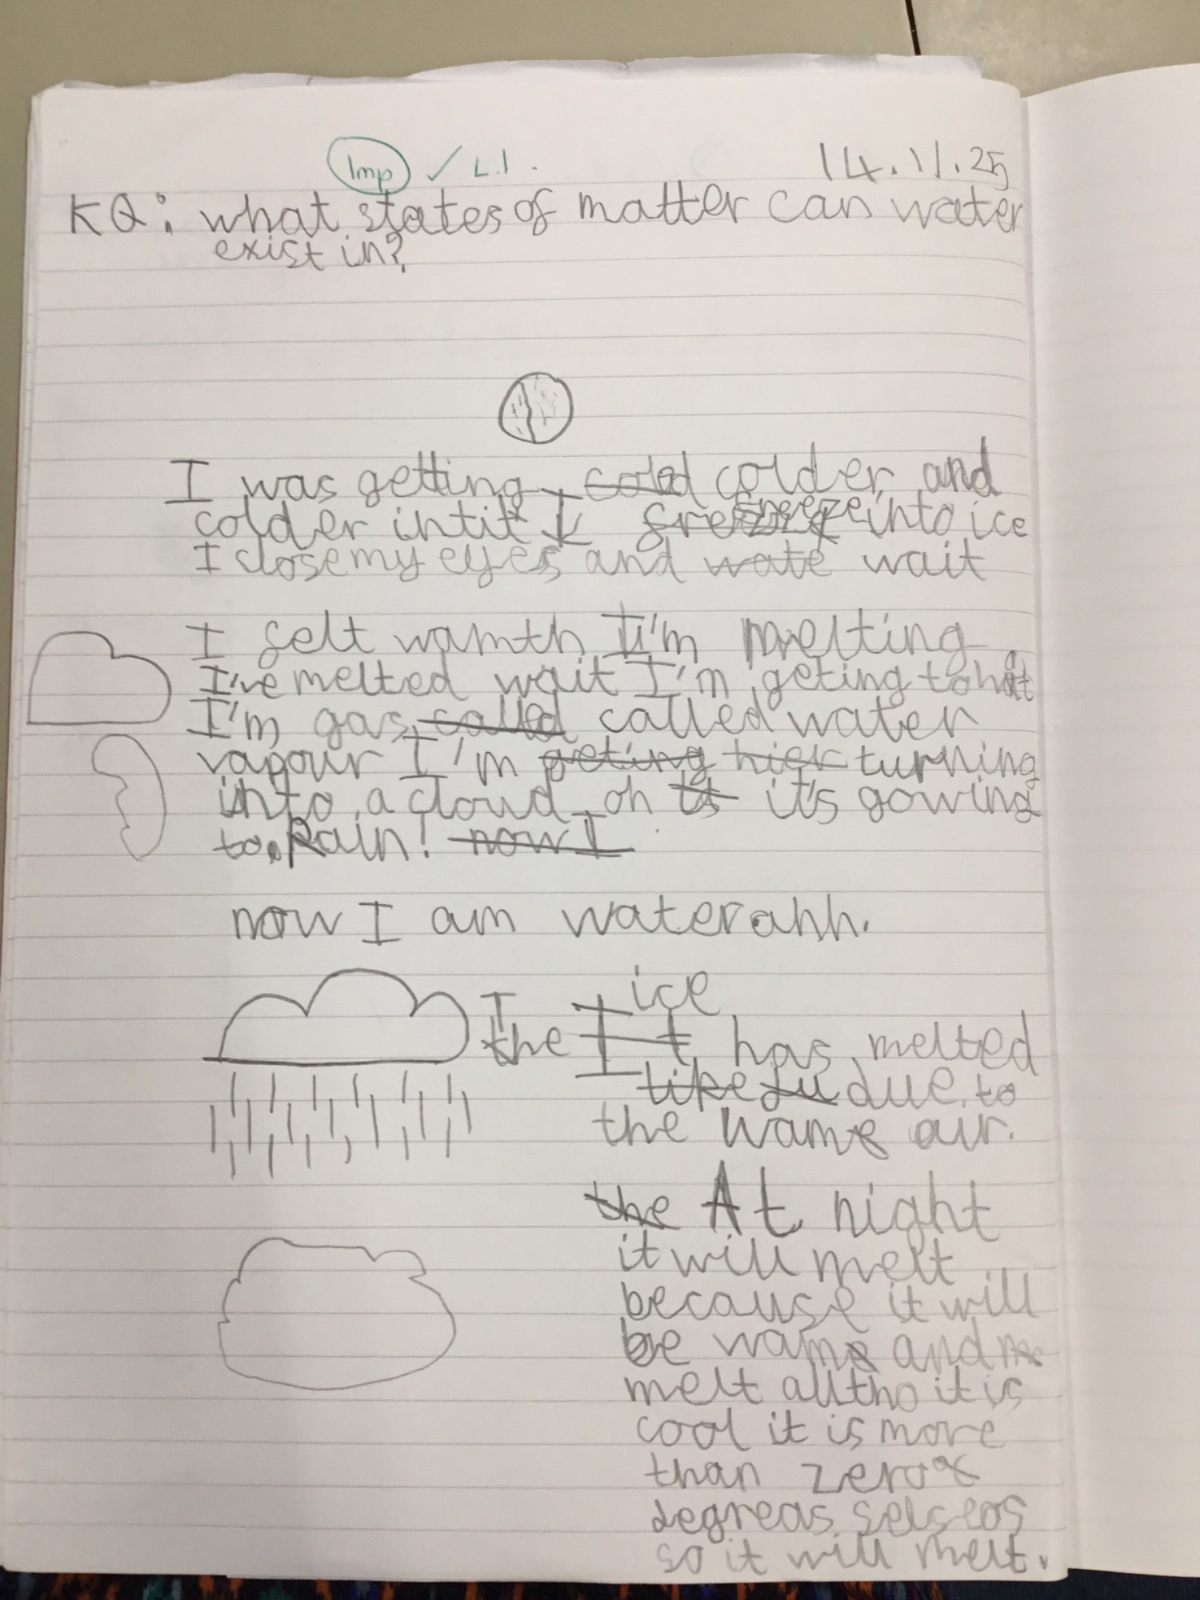 Imp ✓ L.I.
14.11.25
KQ: what states of matter can water
exist in?
I was getting cold colder and
colder intil I freeze into ice
I close my eyes and wate wait
I felt wamth I'm melting
I've melted wait I'm geting to hot
I'm gas called called water
vapour I'm geting hier turning
into a cloud oh is it's gowing
to Rain! now I
now I am water ahh.
ice
The It has melted
like du due to
the wam air.
the At night
it will melt
because it will
be wam and
melt alltho it is
cool it is more
than zero
degreas selseos
so it will melt.